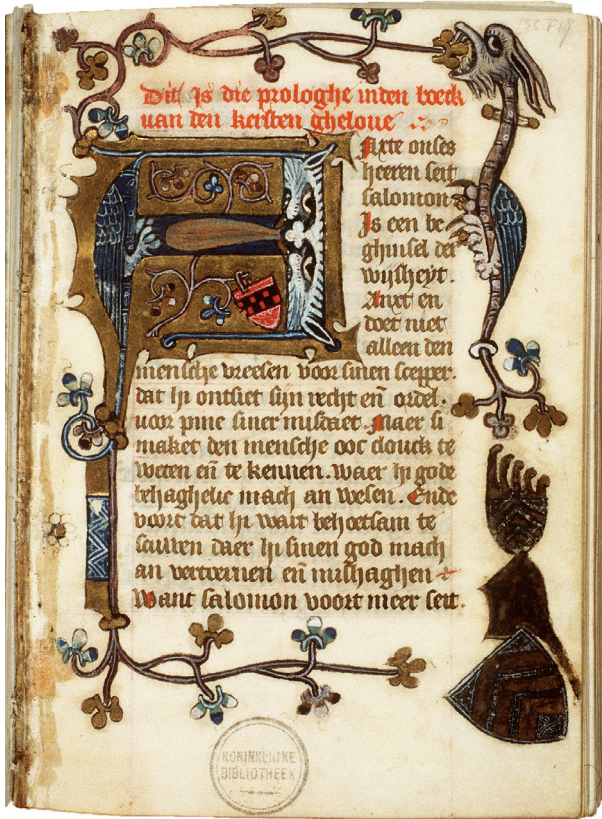 Dit is die prologhe in den boeck
van den kersten gheloue
Axte onses
heeren seit
salomon
Is een be-
ghinsel der
wijsheyt.
Anxt en
doet niet
alleen den
mensche vreesen voor sinen scepper.
dat hi ontsiet sijn recht en̄ ordel.
voor pine siner misdaet. Maer si
maket den mensche ooc clouck te
weten en̄ te kennen. waer hi gode
behaghelic mach an wesen. Ende
voort dat hi wart behoetsam te
scuwen daer hi sinen god mach
an vertoernen en̄ mishaghen
Want salomon voort meer seit.
KONINKLIJKE
BIBLIOTHEEK